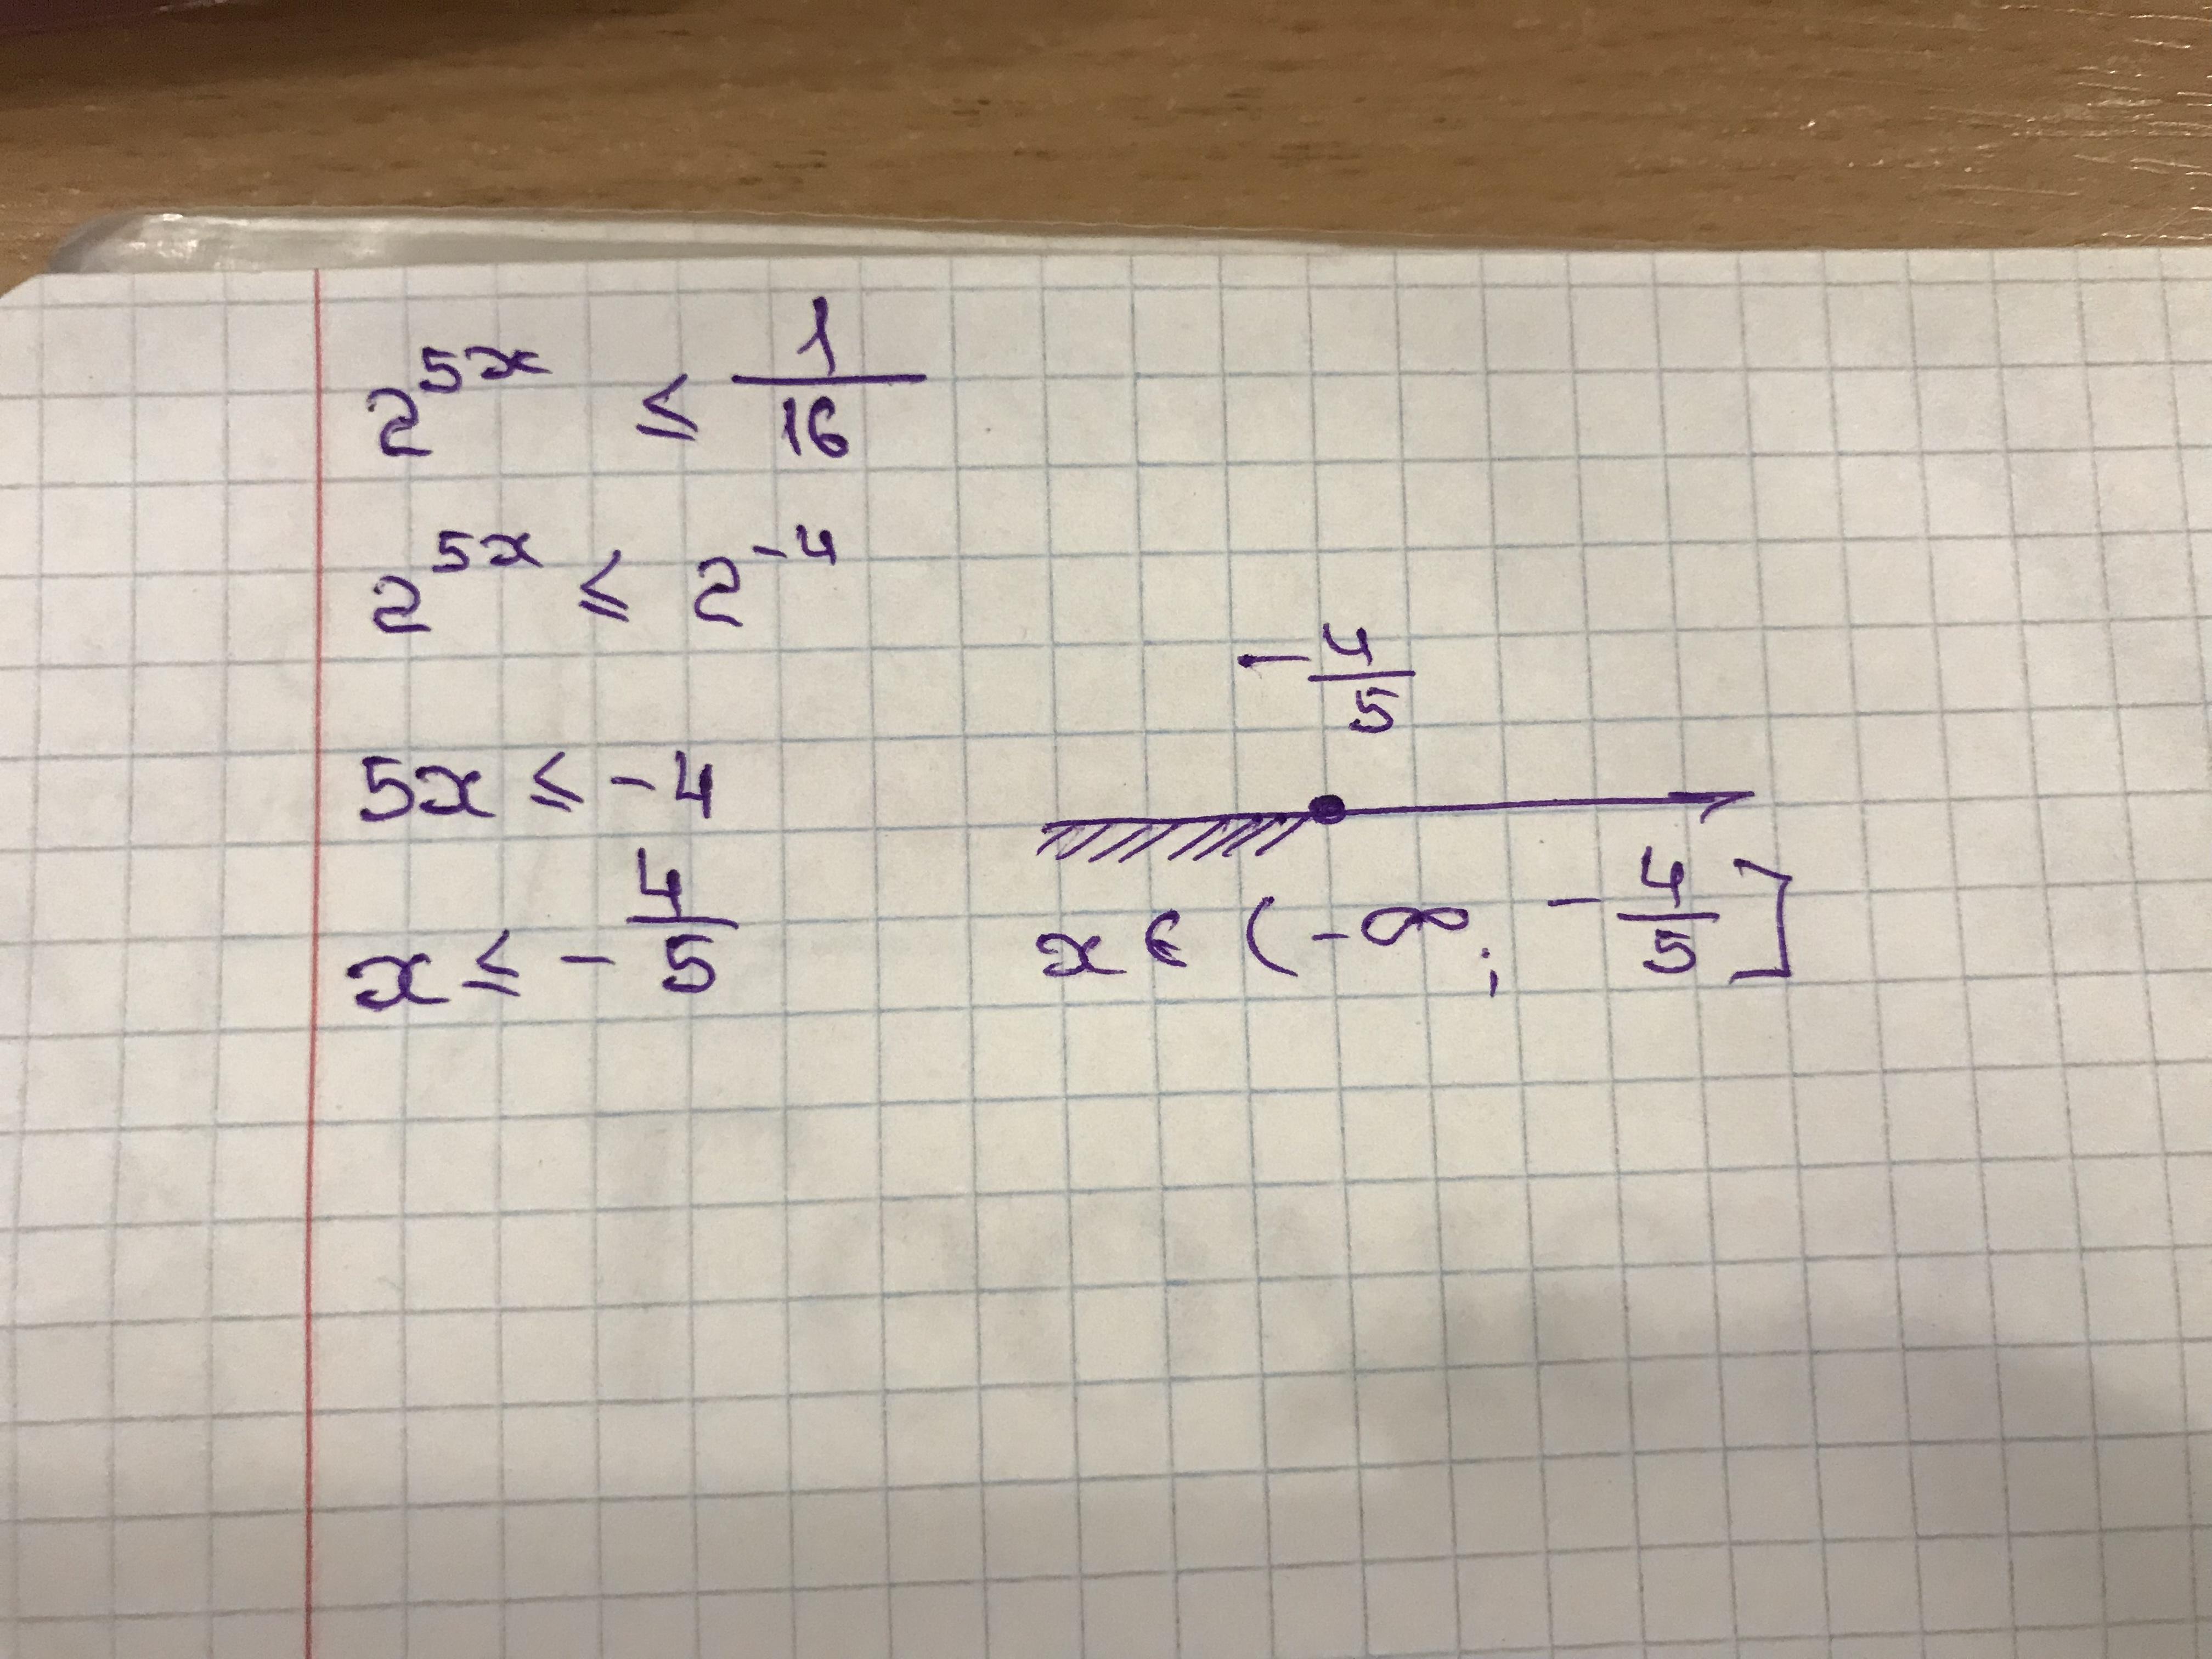 2^{5x} ≤ \frac{1}{16}
2^{5x} ≤ 2^{-4}
5x ≤ -4
x ≤ -\frac{4}{5}
-\frac{4}{5}
x ∈ (-∞; -\frac{4}{5}]